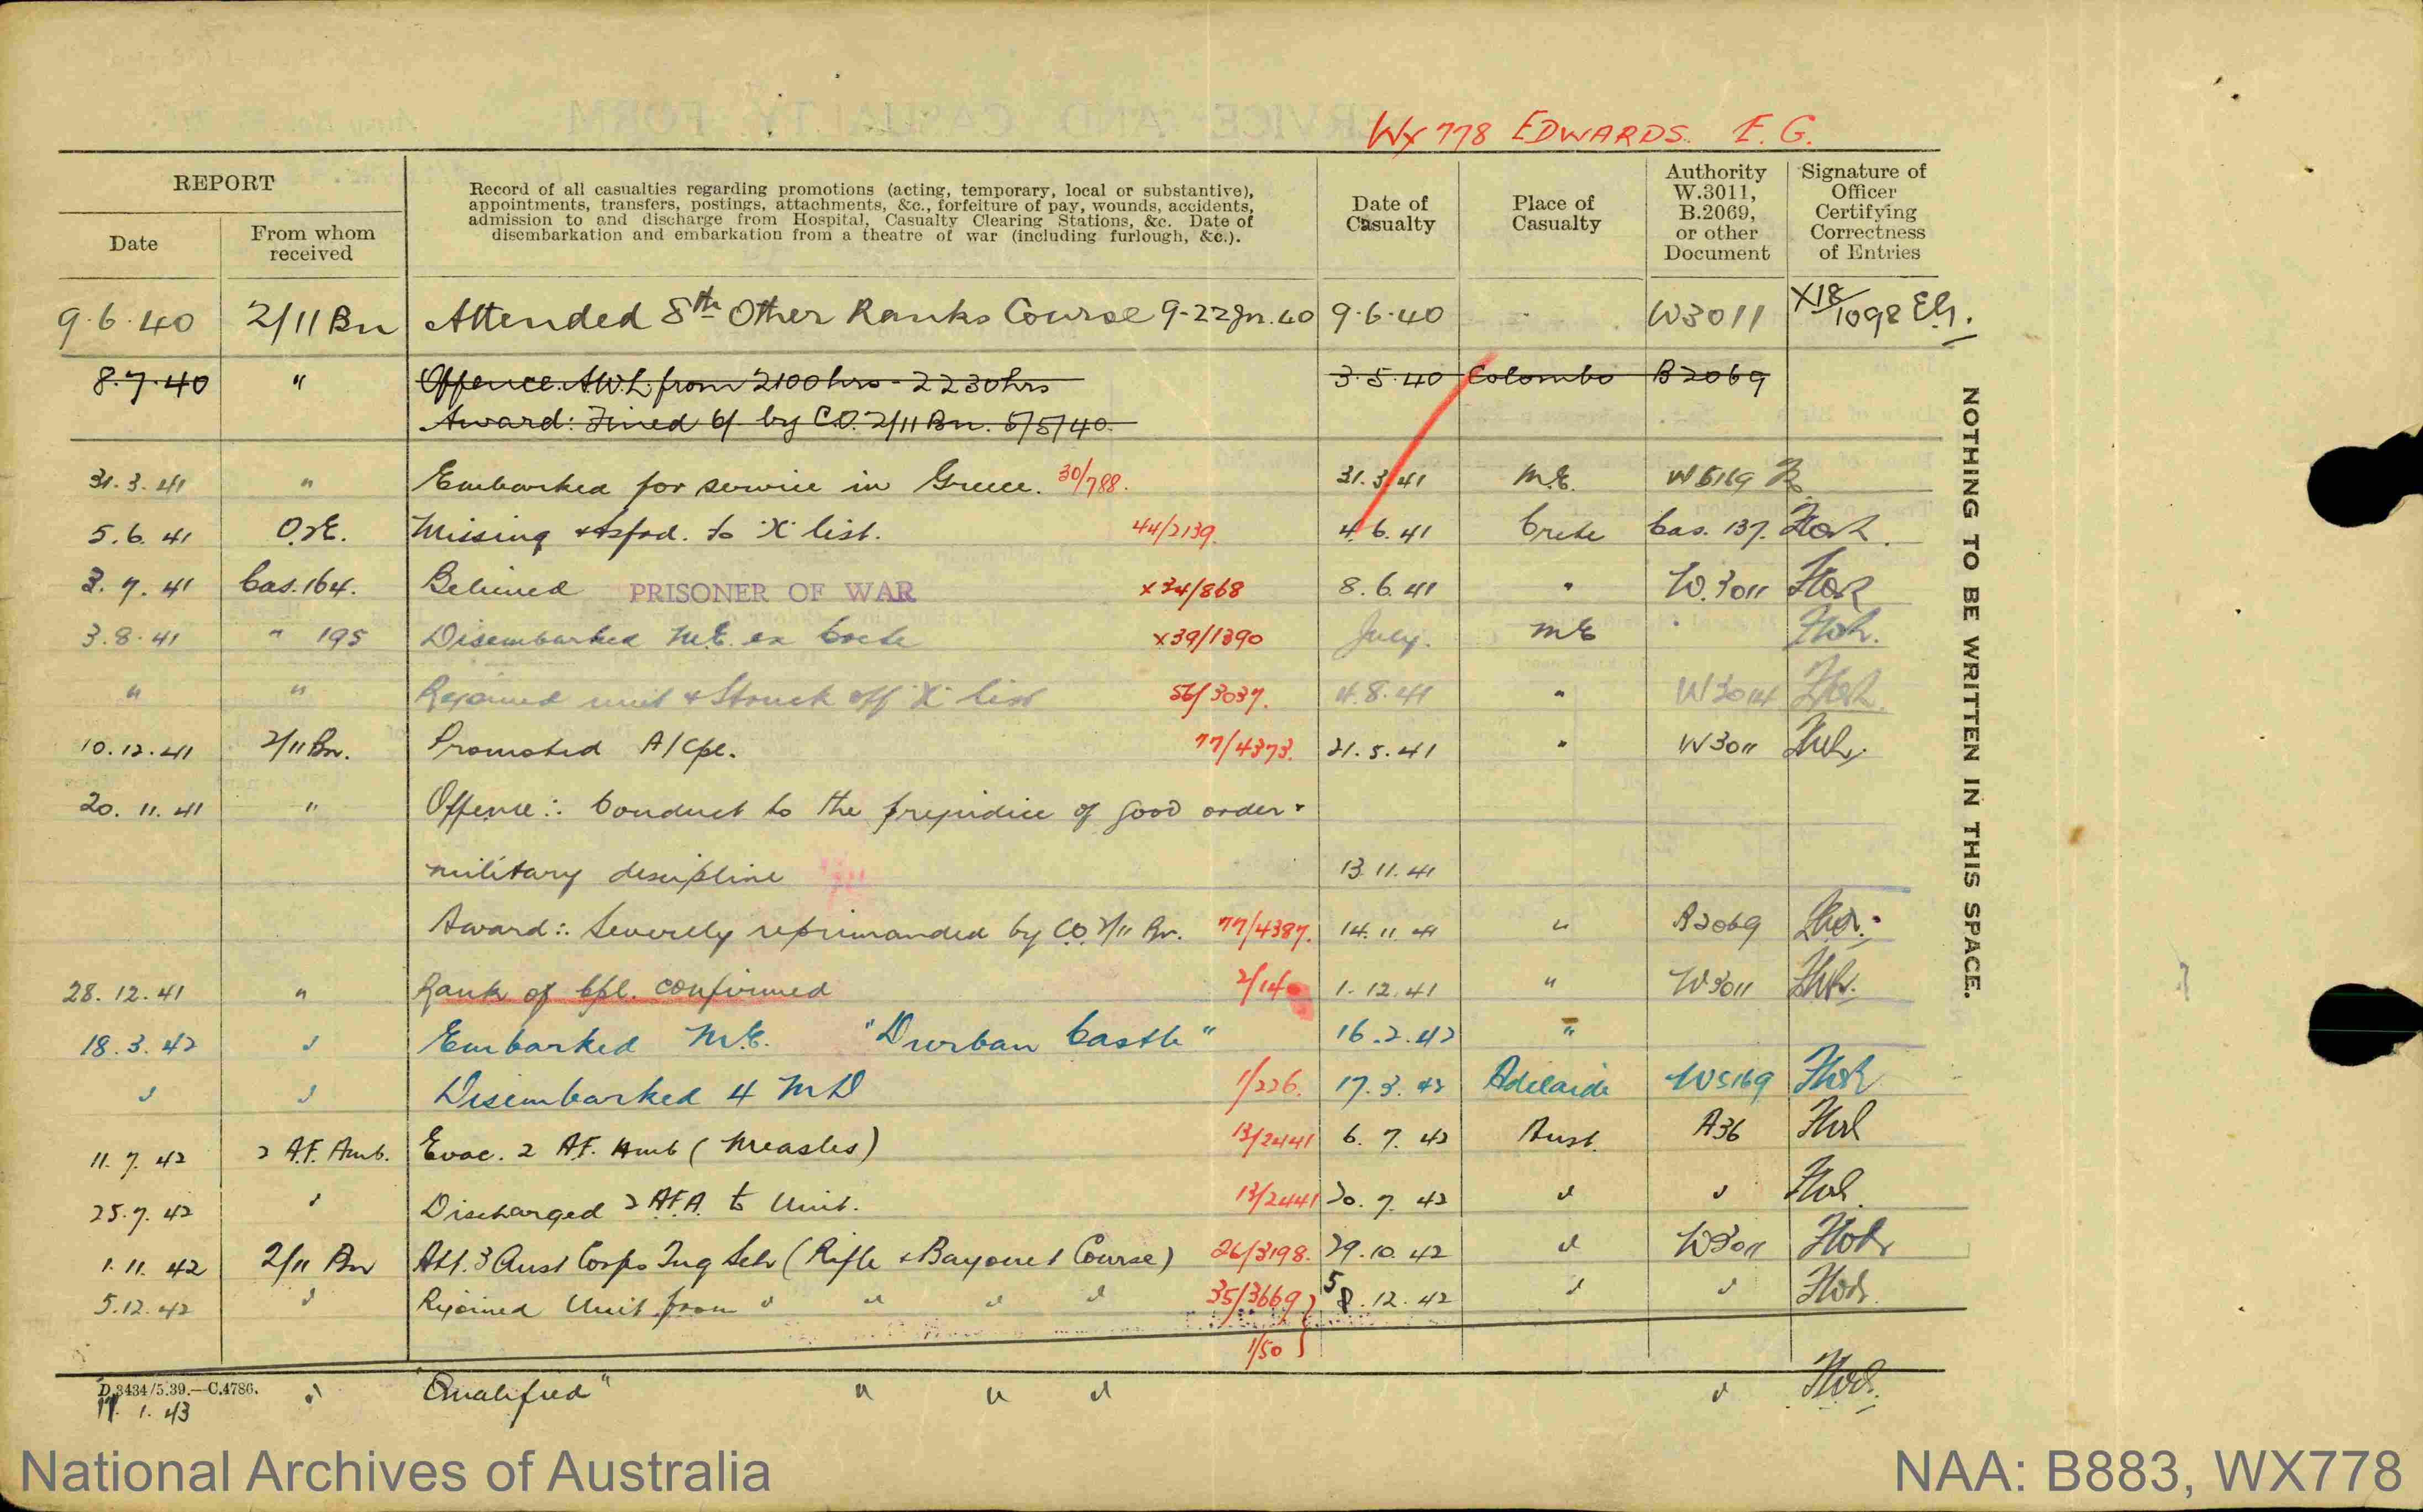 WX 778 EDWARDS. E. G.
REPORT
Date
From whom received
Record of all casualties regarding promotions (acting, temporary, local or substantive),
appointments, transfers, postings, attachments, &c., forfeiture of pay, wounds, accidents,
admission to and discharge from Hospital, Casualty Clearing Stations, &c. Date of
disembarkation and embarkation from a theatre of war (including furlough, &c.).
Date of Casualty
Place of Casualty
Authority W.3011, B.2069, or other Document
Signature of Officer Certifying Correctness of Entries
9.6.40 2/11 Bn Attended 8th Other Ranks Course 9-22 Jn. 40 9.6.40 W3011 X18/1098
8.7.40 " Offence: AWL from 2100 hrs - 2230 hrs 3.5.40 Colombo B2069
Award: Fined 5/- by C.O. 2/11 Bn. 5/5/40
31.3.41 " Embarked for service in Greece. 30/788. 31.3.41 M.E. W5169
5.6.41 O2E. Missing & tsfrd. to "X" list. 44/2139. 4.6.41 Crete Cas. 137.
3.7.41 Cas. 164. Believed PRISONER OF WAR x34/868 8.6.41 " W.3011
3.8.41 " 195 Disembarked M.E. ex Crete x39/1390 July. M.E
" " Rejoined unit & Struck off "X" list 56/3037. 4.8.41 " W3014
10.12.41 2/11 Bn. Promoted A/Cpl. 77/4373. 21.5.41 " W3011
20.11.41 " Offence:. Conduct to the prejudice of good order &
military discipline 13.11.41
Award:. Severely reprimanded by C.O. 2/11 Bn. 77/4387. 14.11.41 " B2069
28.12.41 " Rank of Cpl. confirmed 2/140 1.12.41 " W3011
18.3.42 " Embarked M.E. "Durban Castle" 16.2.42 "
" " Disembarked 4 MD 1/226. 17.3.42 Adelaide W5169
11.7.42 2 A.F. Amb. Evac. 2 A.F. Amb (Measles) 13/2441 6.7.42 Aust. A36
25.7.42 " Discharged 2 A.F.A. to Unit. 13/2441 20.7.42 " "
1.11.42 2/11 Bn Att. 3 Aust Corps Trg Sch (Rifle & Bayonet Course) 26/3198. 29.10.42 " W3011
5.12.42 " Rejoined Unit from " " " " 35/3669 5.12.42 " "
1/50
D.3434/5.39.—C.4786.
1.43 " "Qualified" " " " "
NOTHING TO BE WRITTEN IN THIS SPACE.
National Archives of Australia
NAA: B883, WX778